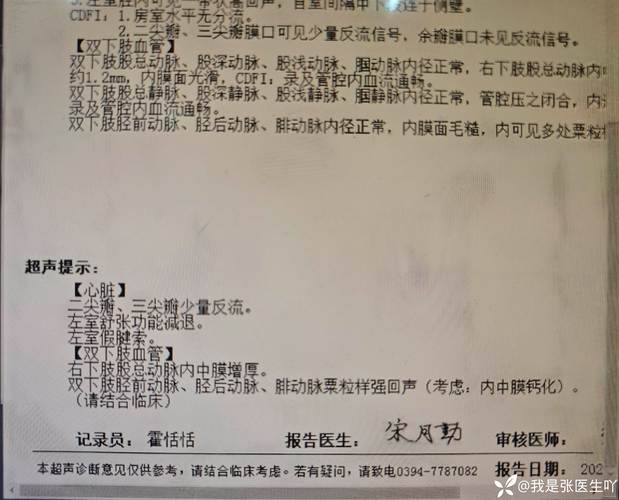 3.左室腔内可见一带状强回声，自室间隔中下段连于侧壁。
CDFI：1.房室水平无分流。
2.二尖瓣、三尖瓣膜口可见少量反流信号，余瓣膜口未见反流信号。
【双下肢血管】
双下肢股总动脉、股深动脉、股浅动脉、腘动脉内径正常，右下肢股总动脉内中
约1.2mm，内膜面光滑，CDFI：录及管腔内血流通畅。
双下肢股总静脉、股深静脉、股浅静脉、腘静脉内径正常，管腔压之闭合，内
录及管腔内血流通畅。
双下肢胫前动脉、胫后动脉、腓动脉内径正常，内膜面毛糙，内可见多处粟粒样
超声提示：
【心脏】
二尖瓣、三尖瓣少量反流。
左室舒张功能减退。
左室假腱索。
【双下肢血管】
右下肢股总动脉内中膜增厚。
双下肢胫前动脉、胫后动脉、腓动脉粟粒样强回声（考虑：内中膜钙化）。
（请结合临床）
记录员： 霍恬恬 报告医生： 宋月勤 审核医师：
本超声诊断意见仅供参考，请结合临床考虑。若有疑问，请致电0394-7787082 报告日期： 202
@我是张医生吖